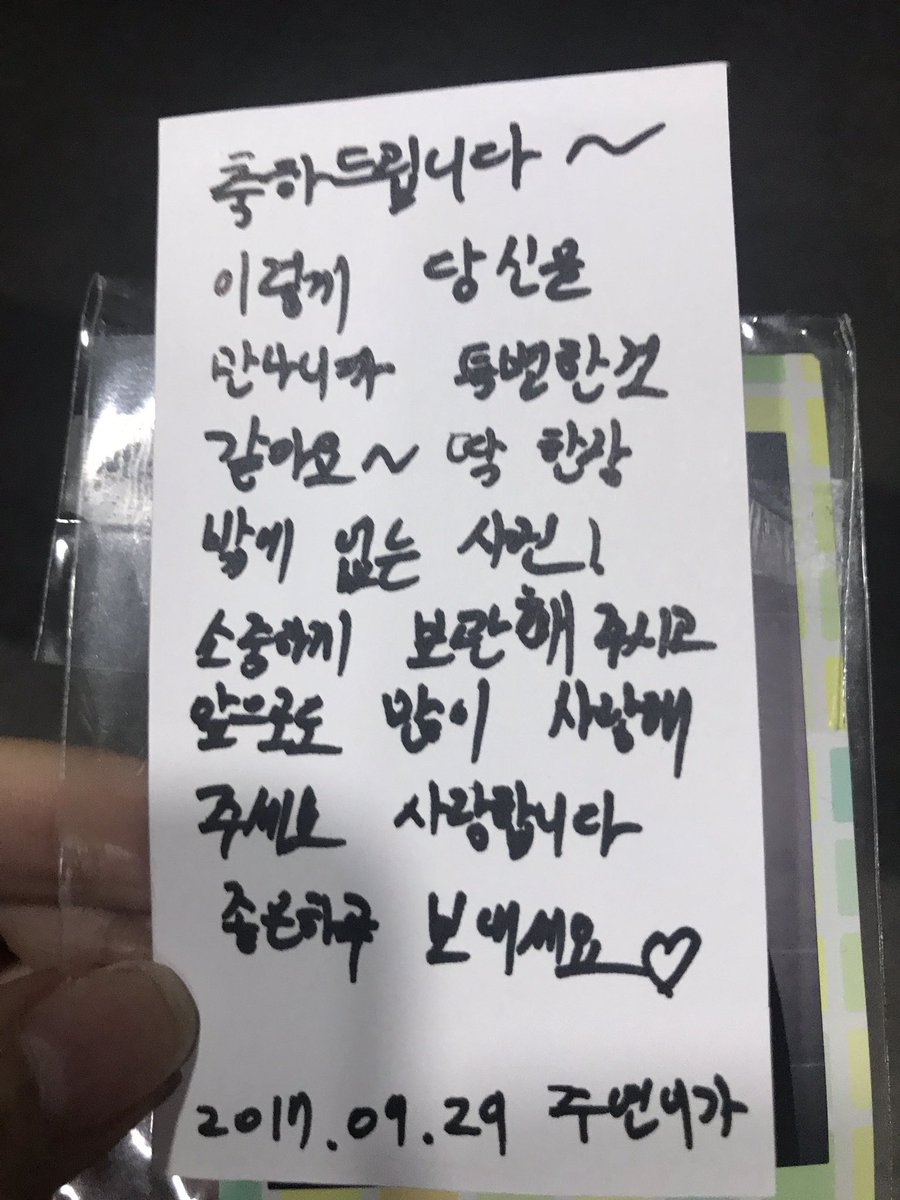 축하드립니다~
이렇게 당신을
만나니까 특별한것
같아요~ 딱 한장
밖에 없는 사진!
소중하게 보관해 주시고
앞으로도 많이 사랑해
주세요 사랑합니다
좋은하루 보내세요♡
2017.09.29 주변니가